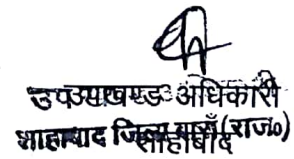 उपखण्ड अधिकारी
शाहाबाद जिला बाराँ (राज०)
शाहाबाद